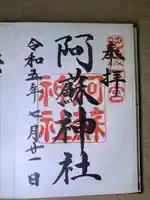 奉拝
阿蘇神社
令和五年七月廿一日
阿蘇
神社